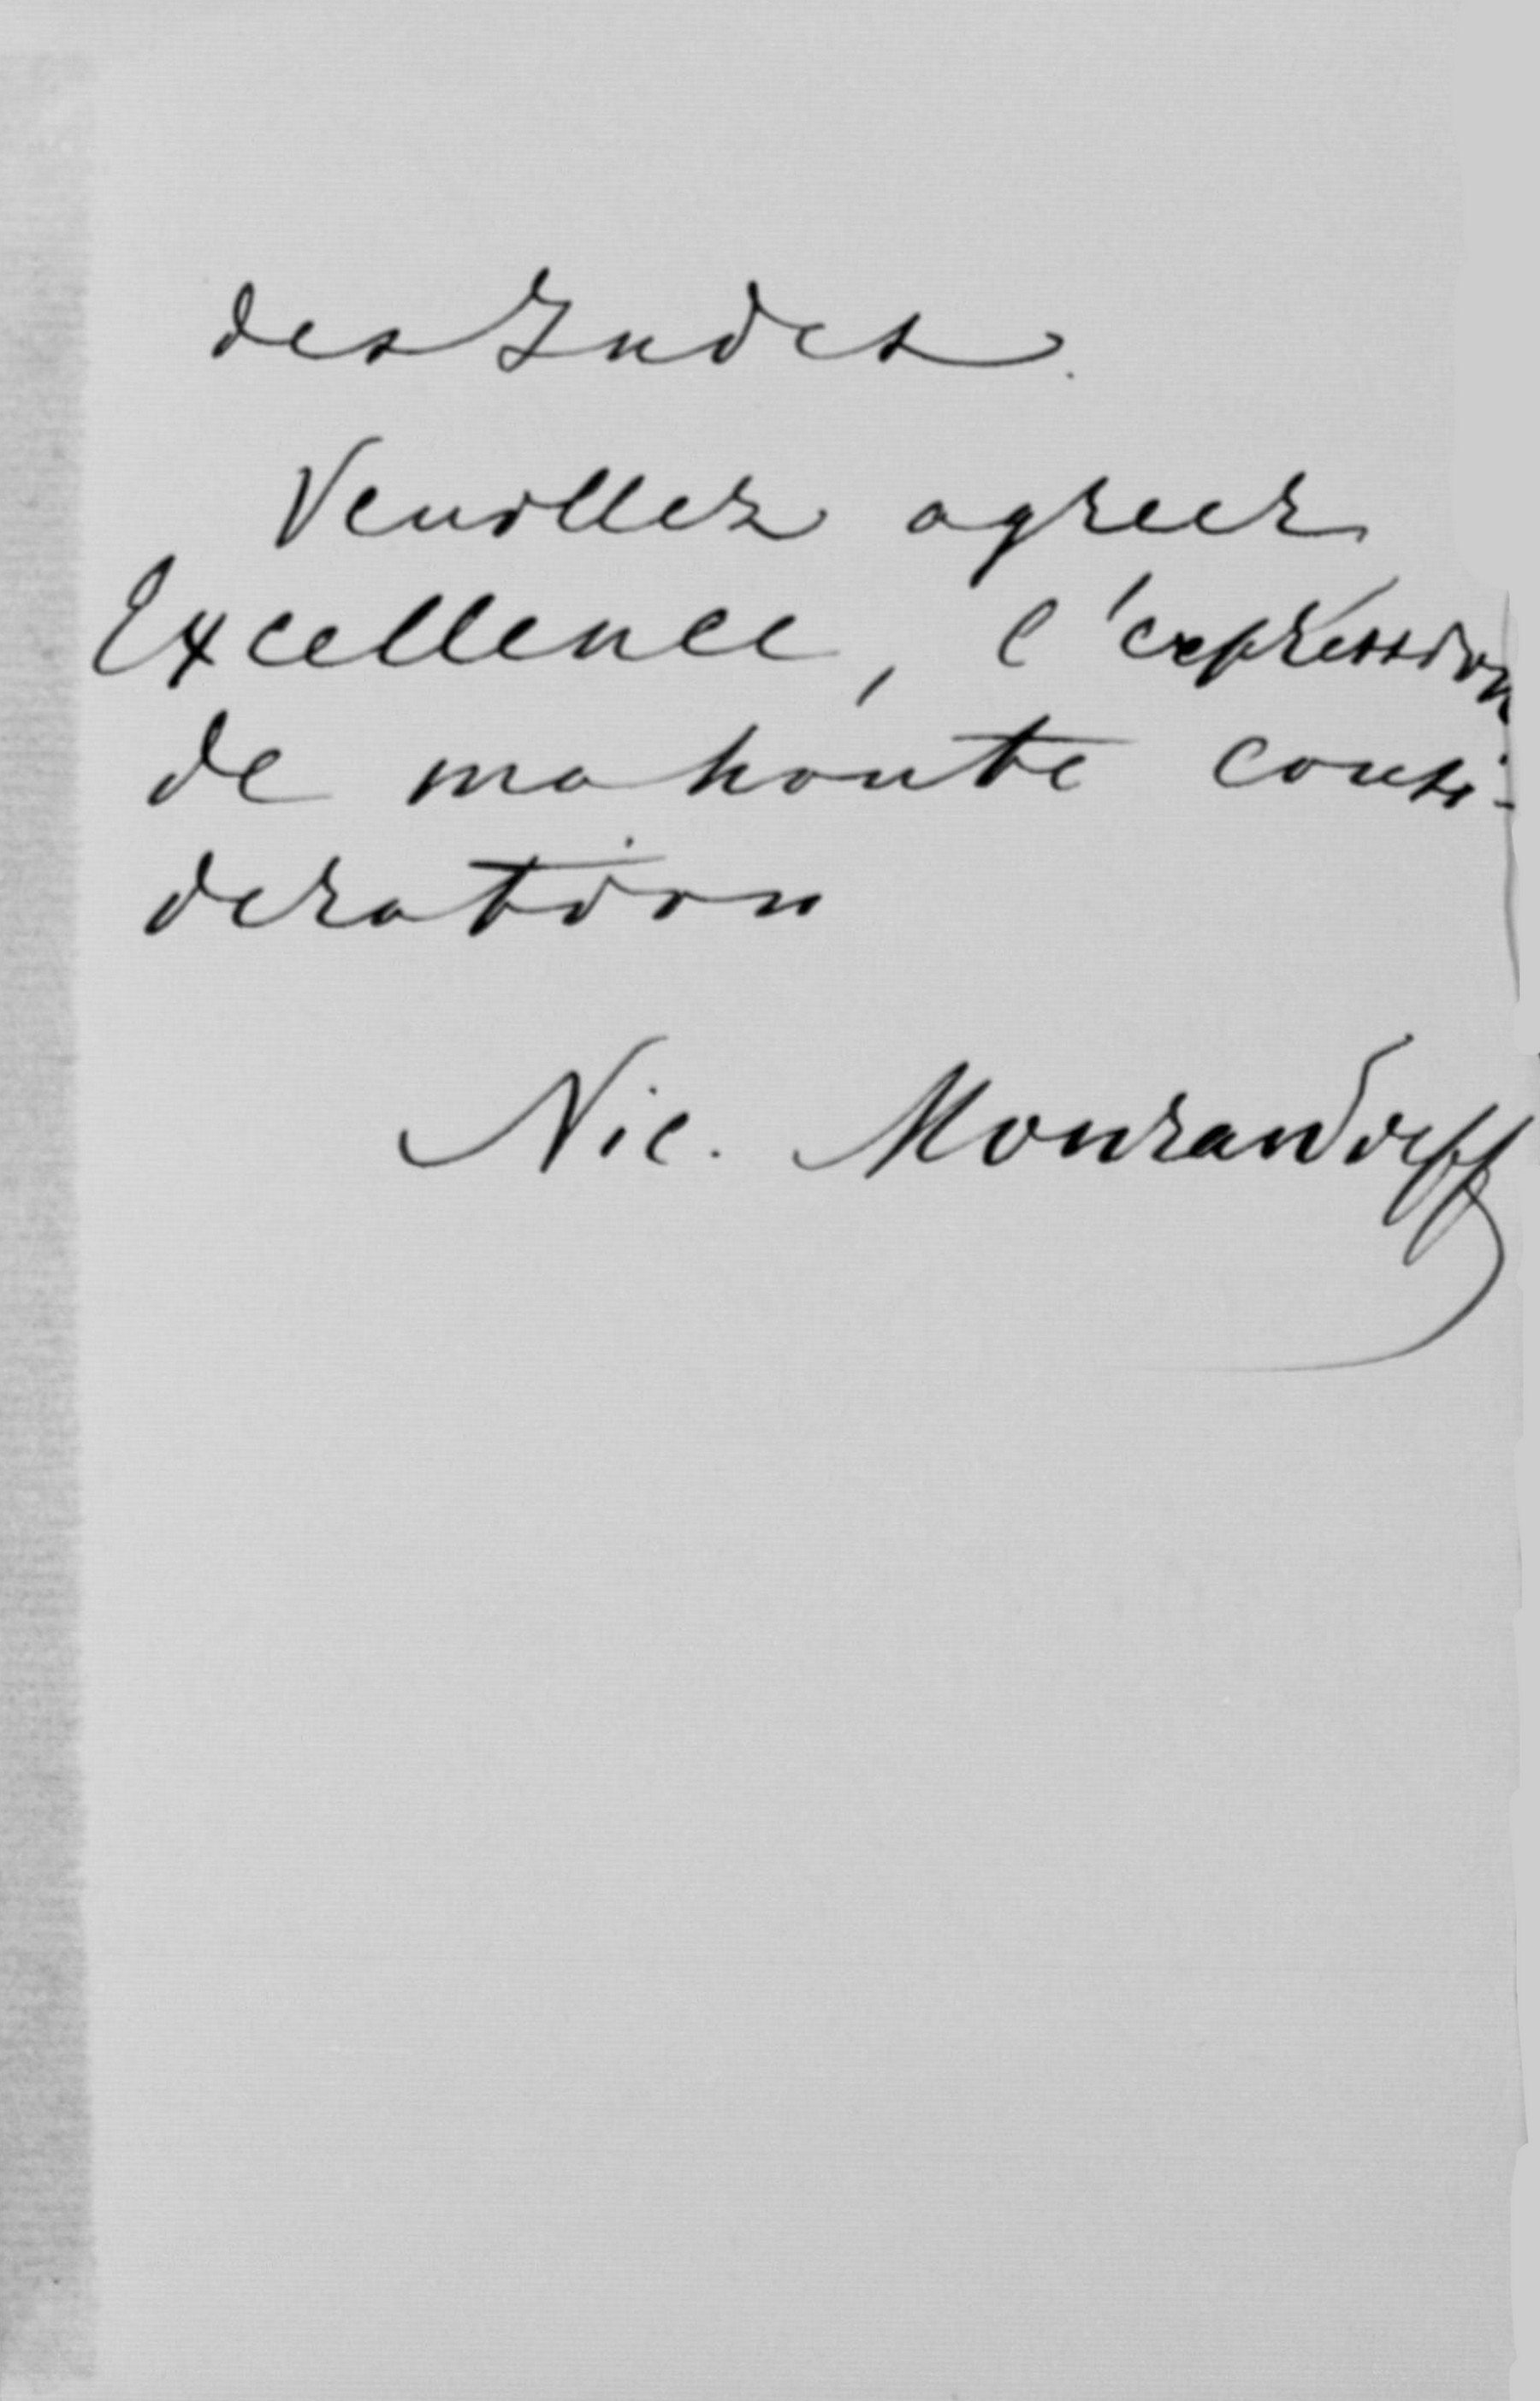 des Indes.
Veuillez agreer
Excellence, l'expression
de ma haute consi-
deration
Nic. Mouravieff